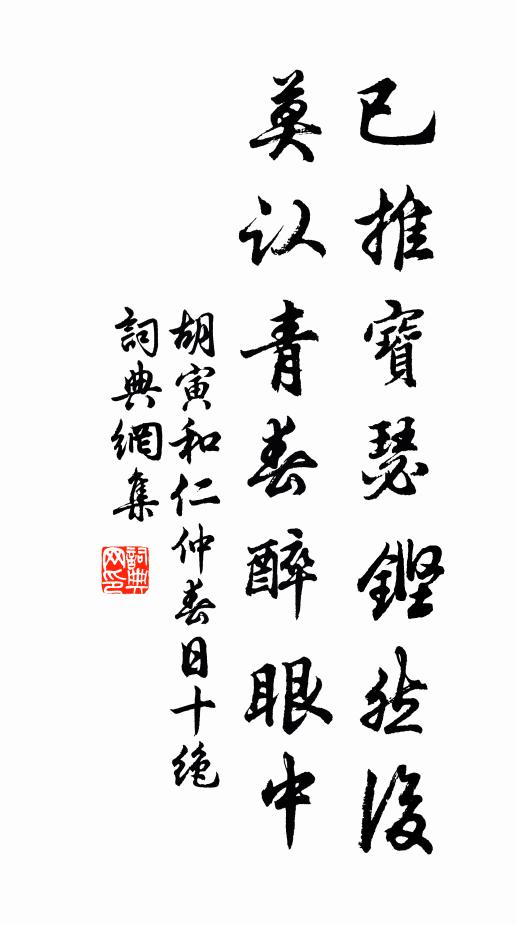 已推寶瑟鏗然後
莫认青春醉眼中
胡寅和仁仲春日十绝
詞典網集
詞典网印